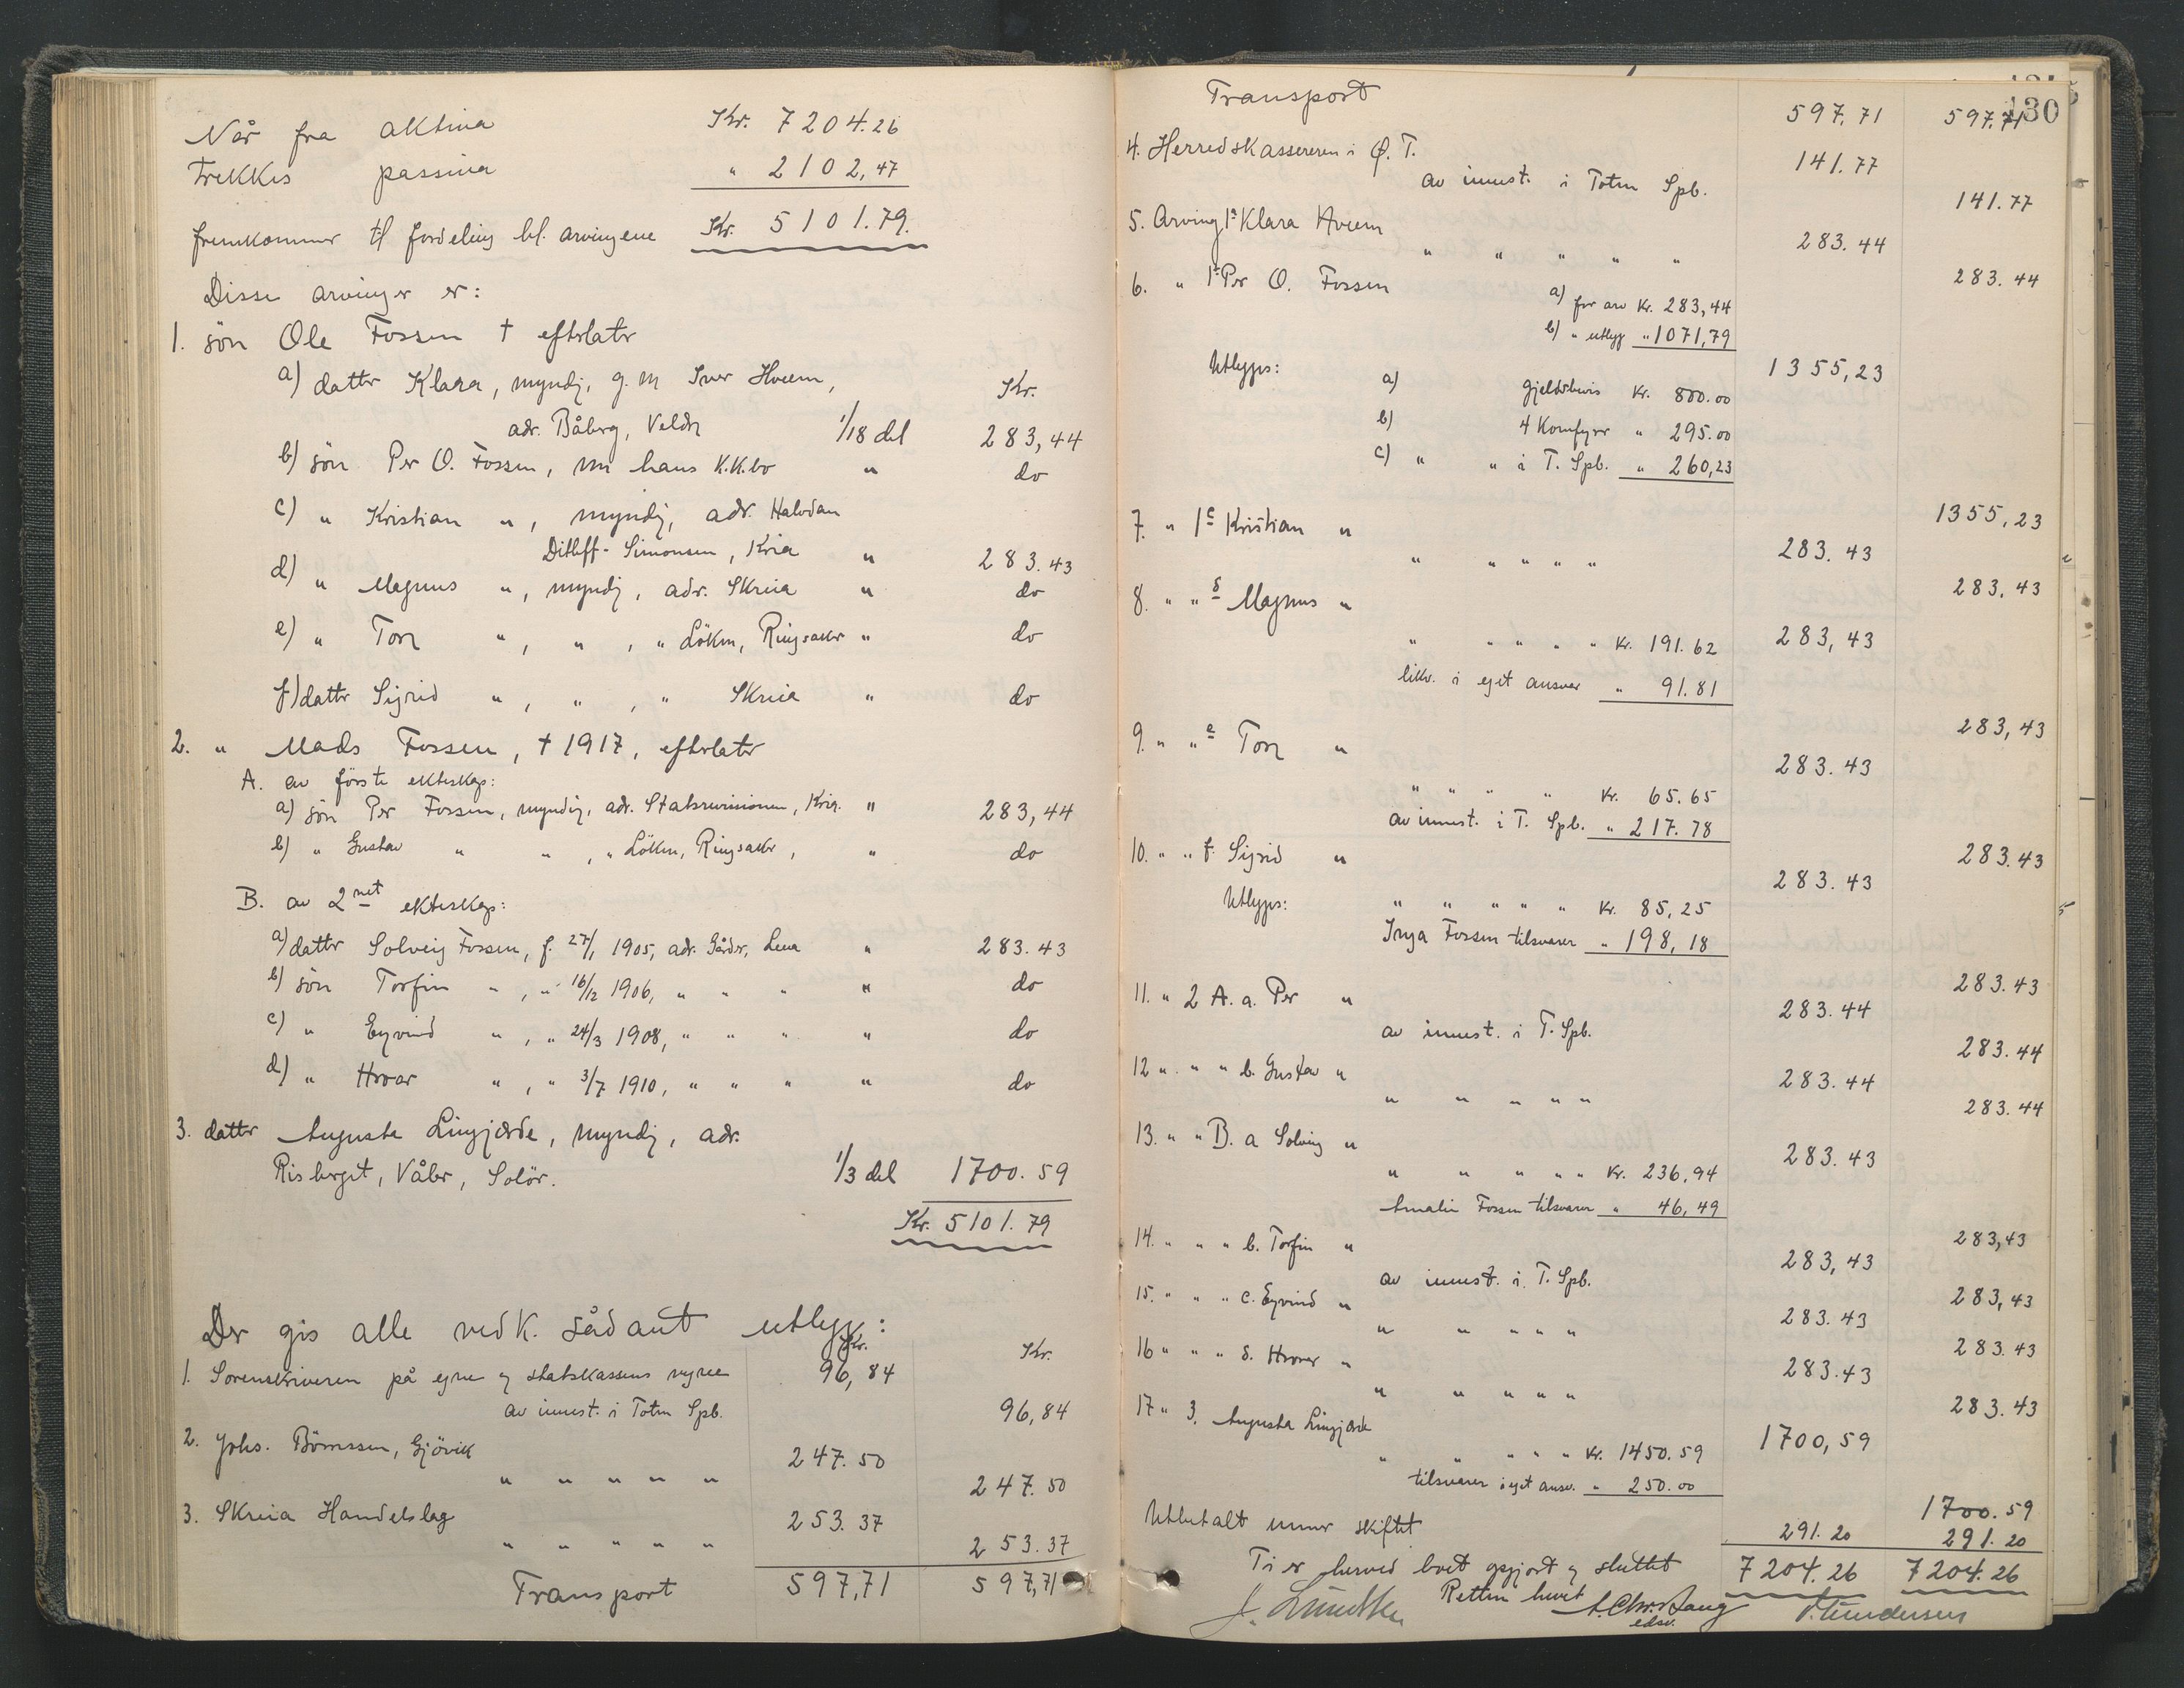 Når fra aktiva Kr. 7204.26
trekkes passiva " 2102,47
fremkommer til fordeling bl. arvingene Kr. 5101.79.
Disse arvinger er:
1. sön Ole Fossen † efterlatr
a) dattr Klara, myndig, g. m Iver Hveem, Kr.
adr. Båberg, Veldr 1/18 del 283,44
b) sön Per O. Fossen, nu hans K.K.bo " do
c) " Kristian ", myndig, adr. Halvdan
Ditleff-Simonsen, Kria " 283.43
d) " Magnus ", myndig, adr. Skreia " do
e) " Tora ", ", " Löken, Ringsaker " do
f) dattr Sigrid ", ", " Skreia " do
2. " Mads Fossen, † 1917, efterlatr
A. av förste ekteskap:
a) sön Per Fossen, myndig, adr. Statsrevisionen, Kria. " 283,44
b) " Gustav " ", " Löken, Ringsaker, " do
B. av 2net ekteskap:
a) dattr Solveig Fossen, f. 27/1 1905, adr. Gårder, Lena " 283.43
b) sön Torfin ", " 16/12 1906, " " " " do
c) " Eyvind ", " 24/3 1908, " " " " do
d) " Hroar ", " 3/7 1910, " " " " do
3. dattr Augusta Lingjærde, myndig, adr.
Risberget, Våler, Solör. 1/3 del 1700.59
Kr. 5101.79
Der gis alle vedk. sådant utlegg:
Kr. Kr.
1. Sorenskriveren på egne og statskassens vegne 96,84
av innest. i Toten Spb. 96,84
2. Johs. Börnssen, Gjövik 247.50
" " " " " 247.50
3. Skreia Handelslag 253.37
" " " " " 253.37
Transport 597,71 597,71
130
Transport 597,71 597,71
4. Herredskassereren i Ø. T. 141.77
av innest. i Toten Spb. 141.77
5. Arving 1a Klara Hveem 283.44
" " " " " 283.44
6. " 1b Per O. Fossen a) for arv Kr. 283,44
b) " utlegg " 1071,79
1355,23
Utlegges: a) gjeldsbevis Kr. 800.00
b) 4 Komfyrer " 295.00
c) " " i T. Spb. " 260,23
1355,23
7. " 1c Kristian " 283.43
" " " " " 283,43
8. " " d Magnus " 283,43
" " " " " Kr. 191.62
likv. i eget ansvar " 91.81
283,43
9. " " e Tora " 283.43
" " " " Kr. 65.65
av innest. i T. Spb. " 217.78
283.43
10. " " f. Sigrid " 283.43
Utlegges: " " " " " Kr. 85,25
Inga Fossen tilsvarer " 198,18
283.43
11. " 2 A. a. Per " 283.44
av innest. i T. Spb. 283.44
12 " " " b. Gustav " 283.44
" " " " " 283.44
13. " " B. a Solveig " 283.43
" " " " " Kr. 236,94
Amalie Fossen tilsvarer " 46,49
283,43
14. " " " b. Torfin " 283,43
av innest. i. T. Spb. 283,43
15. " " " c. Eyvind " 283.43
" " " " " 283.43
16 " " " d. Hroar " 283.43
" " " " " 283.43
17 " 3. Augusta Lingjærde 1700,59
" " " " " Kr. 1450.59
tilsvarer i eget ansv. " 250.00
1700.59
Utbetalt under skiftet 291.20 291.20
Ti er herved boet opgjort og sluttet 7204.26 7204.26
Retten hevet
J. Lundsten A. Chr. Haug
edsv.
P. Gundersen